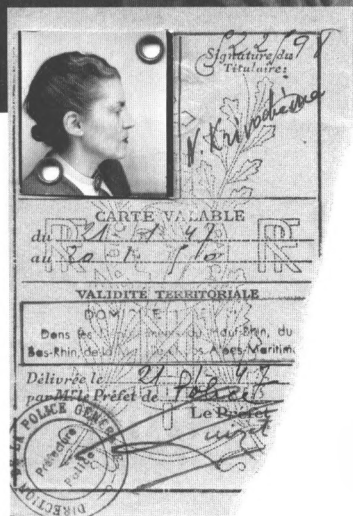 522/98
Signature du
Titulaire:
N. Krivochéine
CARTE VALABLE
du 21 - 1 47
au 20 - 1
RF RF
VALIDITÉ TERRITORIALE
DOMICILE
Dans les du Haut-Rhin, du
Bas-Rhin, de la Alpes-Maritim
Délivrée le 21 47
par M. le Préfet de Police
Le Préfet
DIRECTION DE LA POLICE GÉNÉR
Préfecture
Police